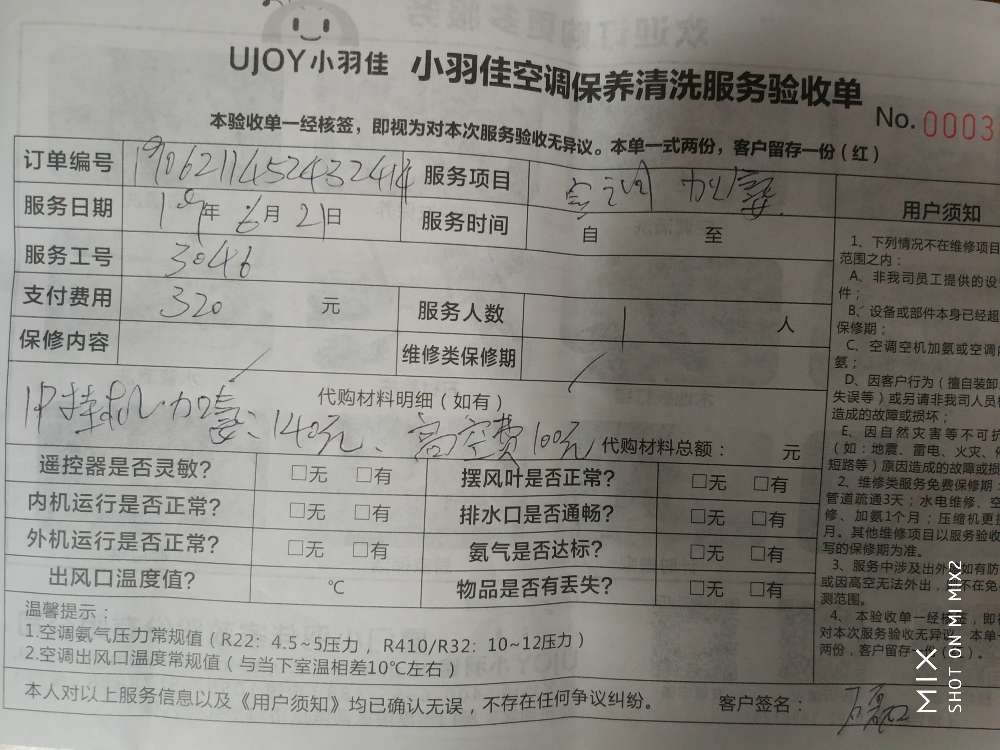 UJOY小羽佳 小羽佳空调保养清洗服务验收单
No. 0003
本验收单一经核签，即视为对本次服务验收无异议。本单一式两份，客户留存一份（红）
订单编号 1906211452432414 服务项目 空调 加氨
服务日期 19年 6月 21日 服务时间 自 至
服务工号 3046
支付费用 320 元 服务人数 1 人
保修内容 / 维修类保修期 /
代购材料明细（如有）
1P挂机加氨、140元、高空费100元 代购材料总额： 元
遥控器是否灵敏? □无 □有 摆风叶是否正常? □无 □有
内机运行是否正常? □无 □有 排水口是否通畅? □无 □有
外机运行是否正常? □无 □有 氨气是否达标? □无 □有
出风口温度值? ℃ 物品是否有丢失? □无 □有
温馨提示：
1.空调氨气压力常规值（R22：4.5~5压力，R410/R32：10~12压力）
2.空调出风口温度常规值（与当下室温相差10℃左右）
本人对以上服务信息以及《用户须知》均已确认无误，不存在任何争议纠纷。 客户签名：
用户须知
1、下列情况不在维修项目
范围之内：
A、非我司员工提供的设
件；
B、设备或部件本身已经超
保修期；
C、空调空机加氨或空调
氨；
D、因客户行为（擅自装卸
失误等）或另请非我司人员
造成的故障或损坏；
E、因自然灾害等不可抗
（如：地震、雷电、火灾、
短路等）原因造成的故障或损
2、维修类服务免费保修期：
管道疏通3天；水电维修、空
修、加氨1个月；压缩机更
月。其他维修项目以服务验收
写的保修期为准。
3、服务中涉及出外 如有防
或因高空无法外出， 不在免
测范围。
4、本验收单一经核签，即
对本次服务验收无异议。本单
两份，客户留存一份
MIX
SHOT ON MI MIX2